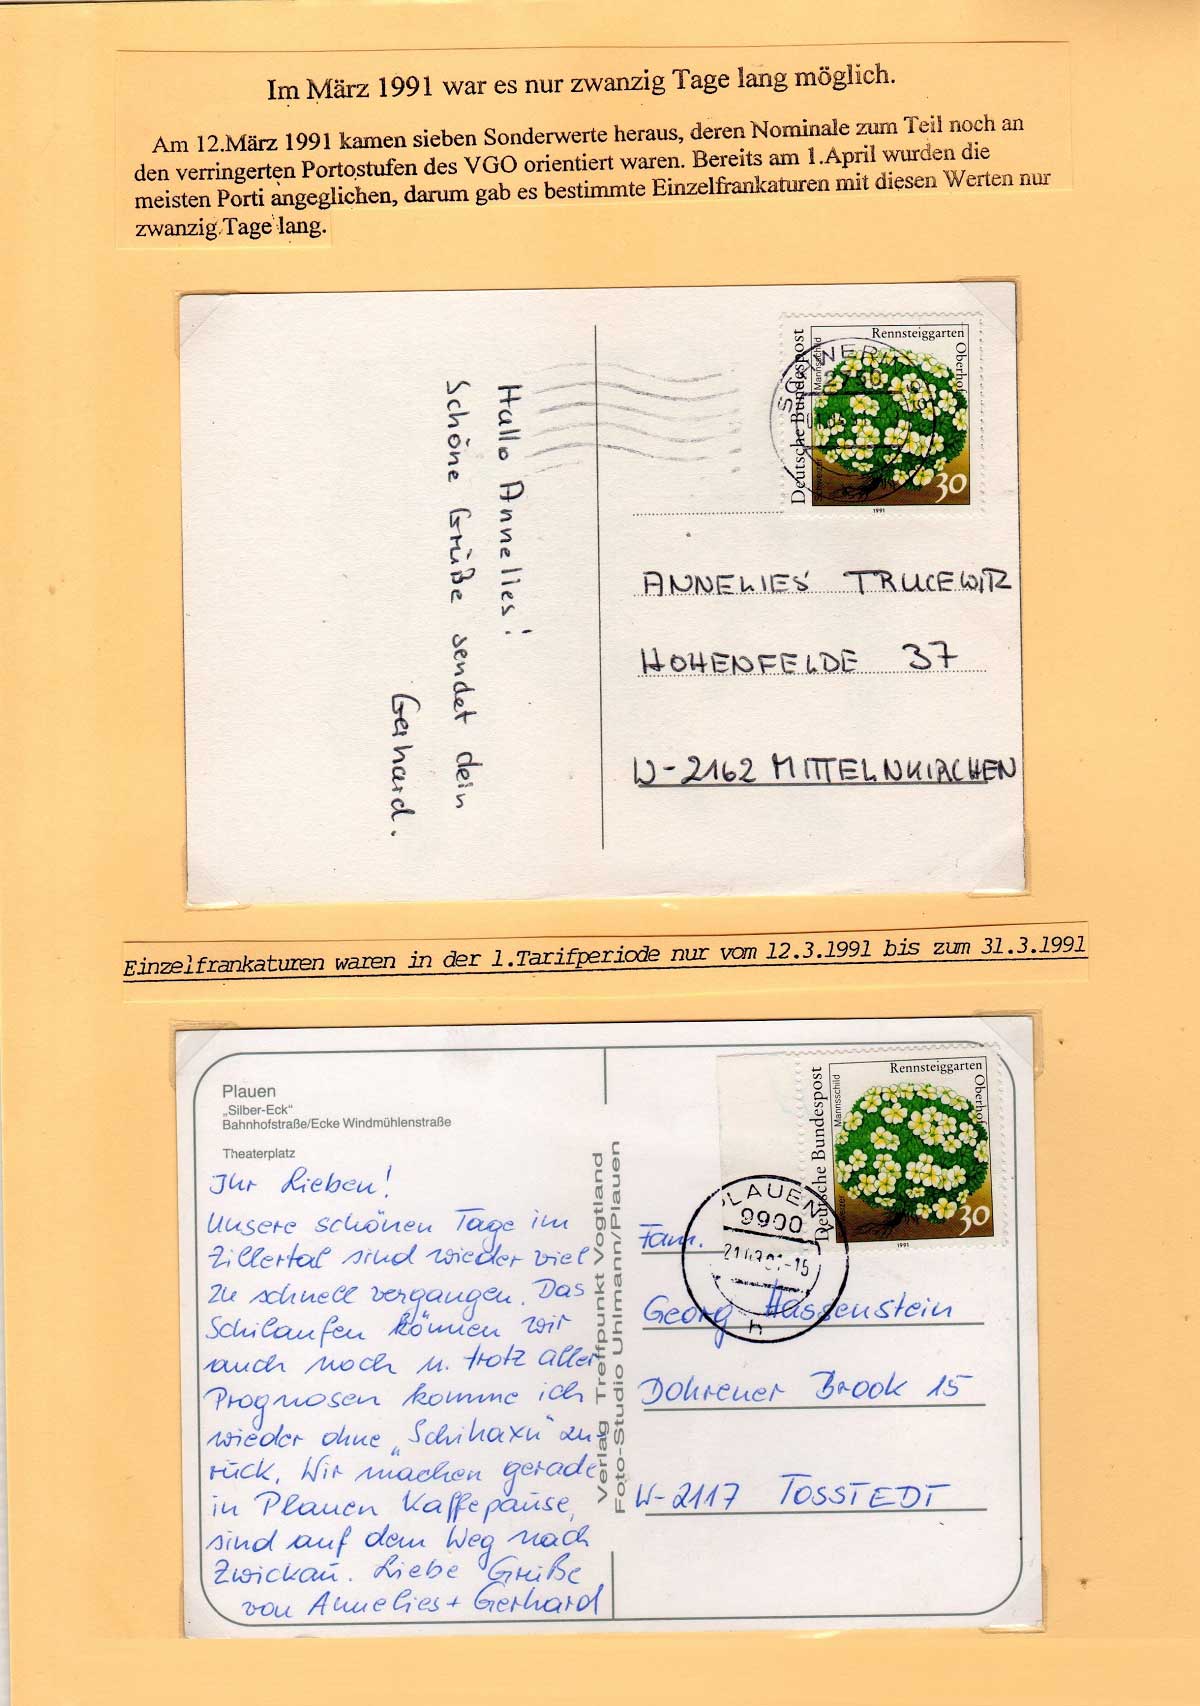 Im März 1991 war es nur zwanzig Tage lang möglich.
Am 12.März 1991 kamen sieben Sonderwerte heraus, deren Nominale zum Teil noch an
den verringerten Portostufen des VGO orientiert waren. Bereits am 1.April wurden die
meisten Porti angeglichen, darum gab es bestimmte Einzelfrankaturen mit diesen Werten nur
zwanzig Tage lang.
Rennsteiggarten
Oberhof
Deutsche Bundespost
Mannsschild
Schweizer
30
1991
Hallo Annelies!
Schöne Grüße sendet dein
Gerhard.
ANNELIES TRUCEWITZ
HOHENFELDE 37
W-2162 MITTELNKIRCHEN
Einzelfrankaturen waren in der 1.Tarifperiode nur vom 12.3.1991 bis zum 31.3.1991
Plauen
„Silber-Eck“
Bahnhofstraße/Ecke Windmühlenstraße
Theaterplatz
Ihr Lieben!
Unsere schönen Tage im
Zillertal sind wieder viel
zu schnell vergangen. Das
Schilaufen können wir
auch noch u. trotz aller
Prognosen komme ich
wieder ohne „Schihaxn“ zu-
rück. Wir machen gerade
in Plauen Kaffepause,
sind auf dem Weg nach
Zwickau. Liebe Grüße
von Annelies + Gerhard
Verlag Treffpunkt Vogtland
Foto-Studio Uhlmann/Plauen
Rennsteiggarten
Oberhof
Deutsche Bundespost
Mannsschild
30
1991
PLAUEN
9900
h
Fam.
Georg Hassenstein
Dohrener Brook 15
W-2117 TOSSTEDT